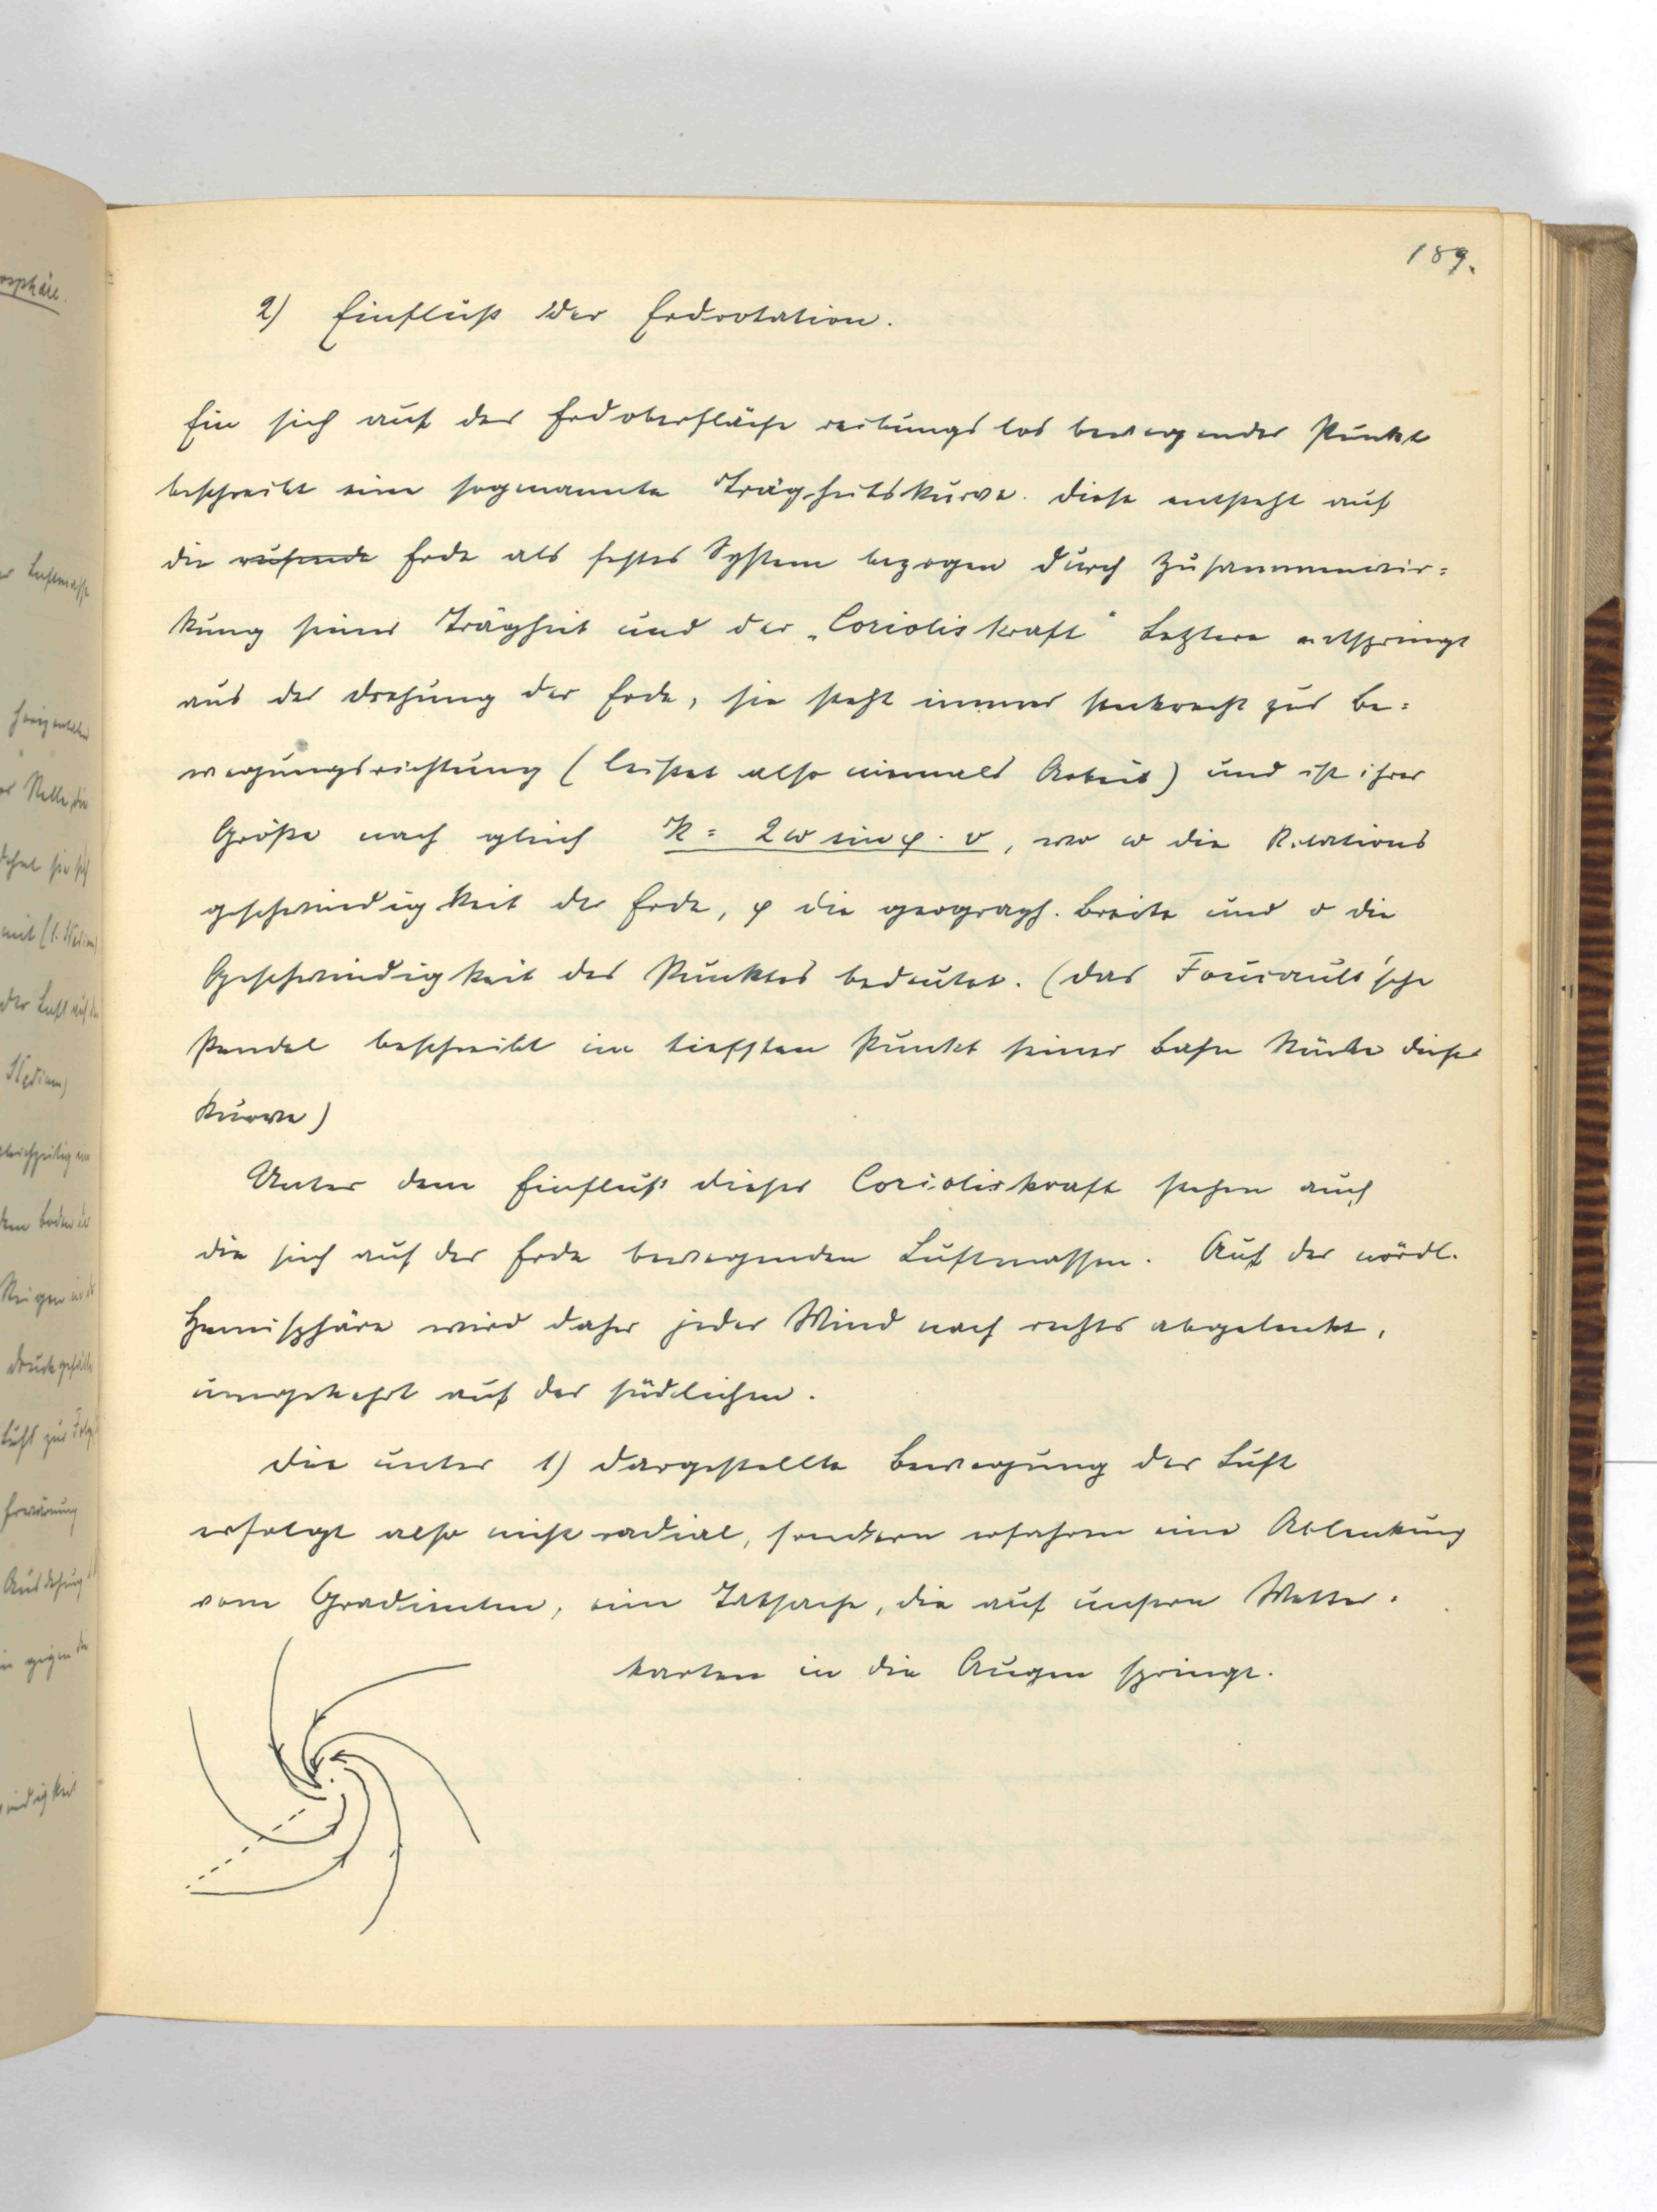 189.
2) Einfluß der Erdrotation.
Ein sich auf der Erdoberfläche reibungslos bewegender Punkt
beschreibt eine sogenannte Trägheitskurve. Diese entsteht auf
die ruhende Erde als festes System bezogen durch Zusammenwir=
kung seiner Trägheit und der „Corioliskraft" Letztere entspringt
aus der Drehung der Erde, sie steht immer senkrecht zur Be=
wegungsrichtung (leistet also niemals Arbeit) und ist ihrer
Größe nach gleich K = 2ω sin φ · v, wo ω die Rotations
geschwindigkeit der Erde, φ die geograph. Breite und v die
Geschwindigkeit des Punktes bedeutet. (Das Foucault'sche
Pendel beschreibt im tiefsten Punkt seiner Bahn Stücke dieser
Kurve)
Unter dem Einfluß dieser Corioliskraft stehen auch
die sich auf der Erde bewegenden Luftmassen. Auf der nördl.
Hemisphäre wird daher jeder Wind nach rechts abgelenkt,
umgekehrt auf der südlichen.
Die unter 1) dargestellte Bewegung der Luft
erfolgt also nicht radial, sondern erfahren eine Ablenkung
vom Gradienten, eine Tatsache, die auf unsern Wetter-
karten in die Augen springt.
osphäre.
Luftmasse
horizontalen
Stelle, die
dehnt sie sich
mit (1. Stadium)
der Luft auf
Stadium)
gleichzeitig
dem Boden
Steigen
Druckgefälle
Luft zur Folge
Erwärmung
Ausdehnung
gegen die
windigkeit